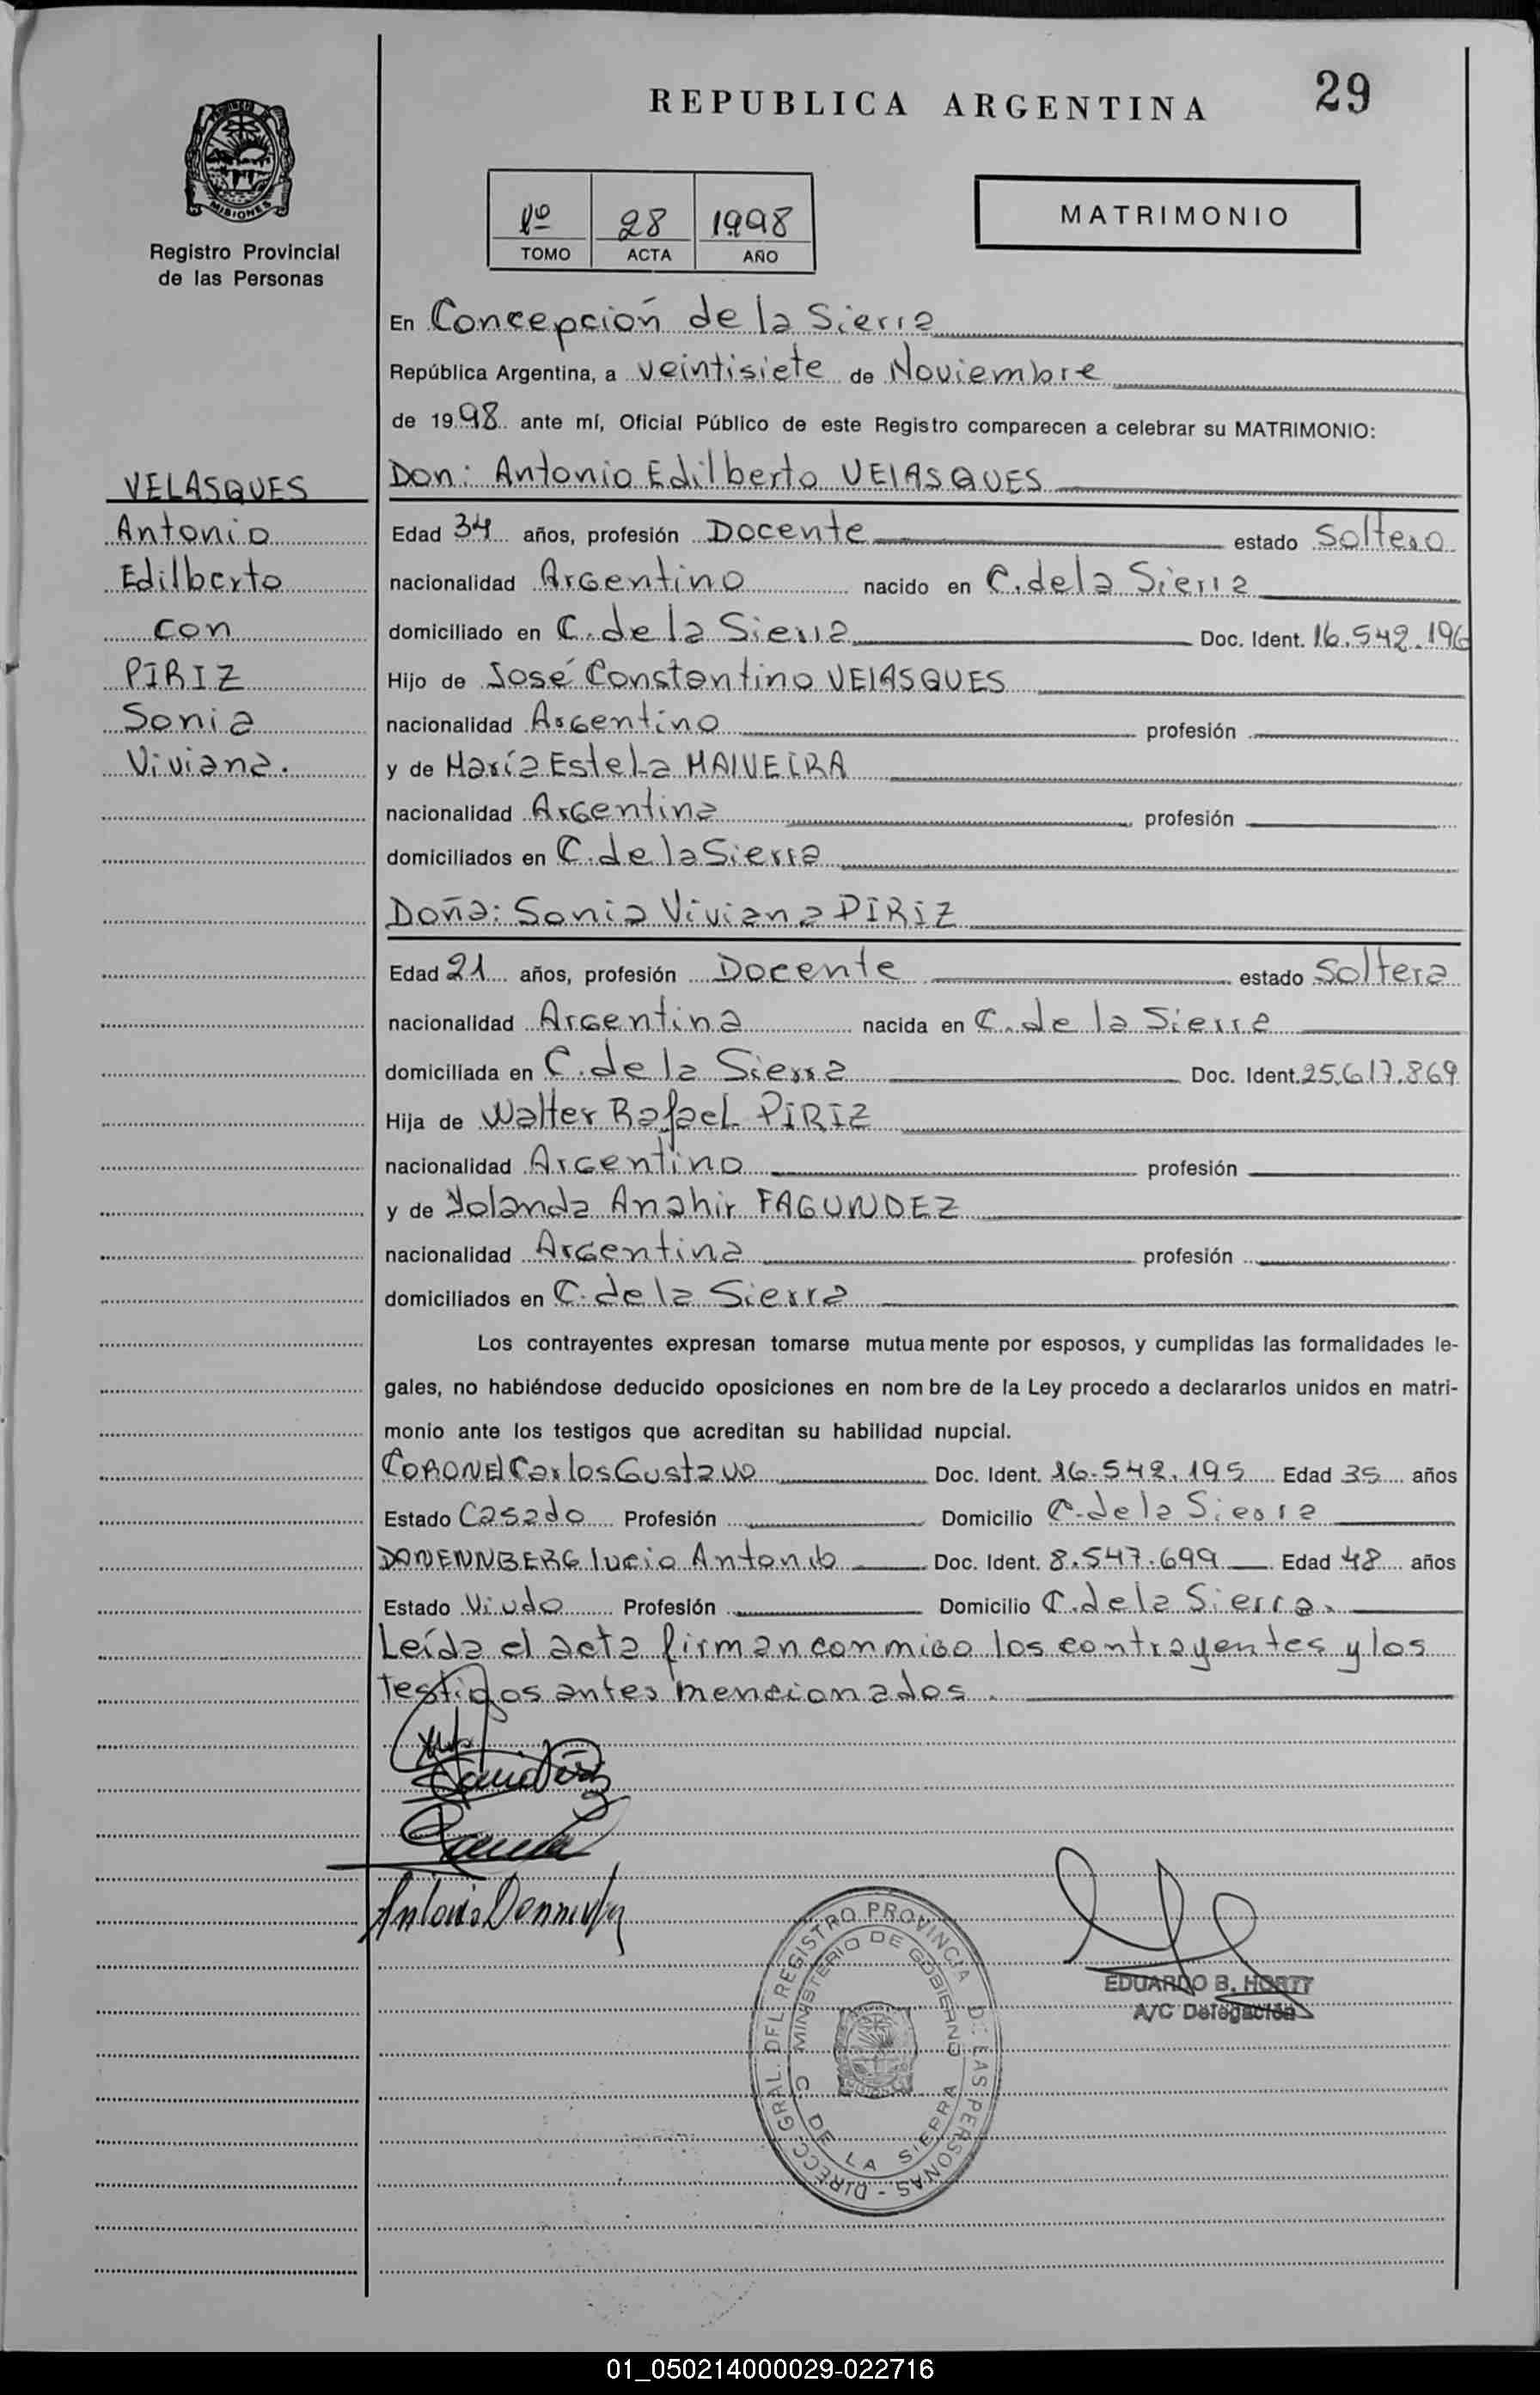 REPUBLICA ARGENTINA
29
MISIONES
Registro Provincial
de las Personas
1º 28 1998
TOMO ACTA AÑO
MATRIMONIO
En Concepción de la Sierra
República Argentina, a veintisiete de Noviembre
de 1998 ante mí, Oficial Público de este Registro comparecen a celebrar su MATRIMONIO:
VELASQUES
Antonio
Edilberto
con
PIRIZ
Sonia
Viviana.
Don: Antonio Edilberto VELASQUES
Edad 34 años, profesión Docente estado Soltero
nacionalidad Argentino nacido en C. de la Sierra
domiciliado en C. de la Sierra Doc. Ident. 16.542.196
Hijo de José Constantino VELASQUES
nacionalidad Argentino profesión
y de María Estela MALVEIRA
nacionalidad Argentina profesión
domiciliados en C. de la Sierra
Doña: Sonia Viviana PIRIZ
Edad 21 años, profesión Docente estado Soltera
nacionalidad Argentina nacida en C. de la Sierra
domiciliada en C. de la Sierra Doc. Ident. 25.617.869
Hija de Walter Rafael PIRIZ
nacionalidad Argentino profesión
y de Yolanda Anahir FAGUNDEZ
nacionalidad Argentina profesión
domiciliados en C. de la Sierra
Los contrayentes expresan tomarse mutuamente por esposos, y cumplidas las formalidades le-
gales, no habiéndose deducido oposiciones en nombre de la Ley procedo a declararlos unidos en matri-
monio ante los testigos que acreditan su habilidad nupcial.
CORONEL Carlos Gustavo Doc. Ident. 16.542.195 Edad 35 años
Estado Casado Profesión Domicilio C. de la Sierra
DONENNBERG Lucio Antonio Doc. Ident. 8.547.699 Edad 48 años
Estado Viudo Profesión Domicilio C. de la Sierra.
Leída el acta firman conmigo los contrayentes y los
testigos antes mencionados.
EDUARDO B. HORTT
A/C Delegación
DIRECC. GRAL. DEL REGISTRO PROVINCIA DE LAS PERSONAS -
MINISTERIO DE GOBIERNO
C. DE LA SIERRA
01_050214000029-022716